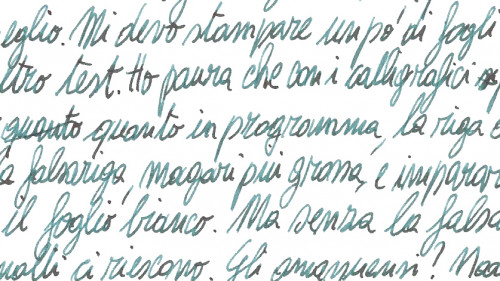 eglio. Mi devo stampare un po' di fogli
ltro test. Ho paura che con i calligrafici
quanto quanto in programma, la riga
la falsariga, magari più grossa, e imparar
il foglio bianco. Ma senza la falsa
ci riescono. Gli amanuensi?